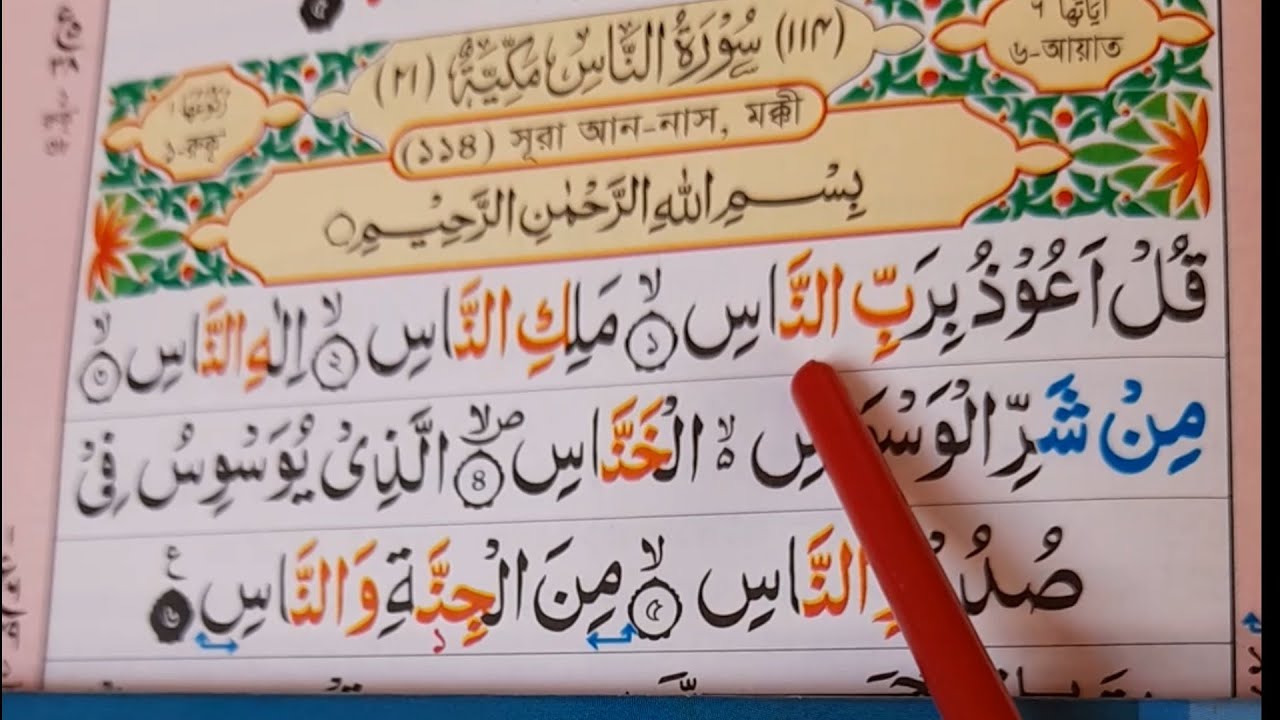 (١١٤) سُوْرَةُ النَّاسِ مَكِّيَّةٌ (٢١)
اٰيَاتُهَا ٦
৬-আয়াত
رُكُوْعُهَا ١
১-রুকু
(১১৪) সূরা আন-নাস, মক্কী
بِسْمِ اللّٰهِ الرَّحْمٰنِ الرَّحِيْمِ ○
قُلْ اَعُوْذُ بِرَبِّ النَّاسِ ۙ ১ مَلِكِ النَّاسِ ۙ ২ اِلٰهِ النَّاسِ ۙ ৩
مِنْ شَرِّ الْوَسْوَاسِ ۵ۙ الْخَنَّاسِ ۪ۙ ৪ الَّذِىْ يُوَسْوِسُ فِىْ
صُدُوْرِ النَّاسِ ۙ ৫ مِنَ الْجِنَّةِ وَالنَّاسِ ৬ ع
১